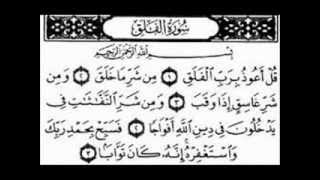 سُورَةُ الْفَلَقِ
بِسْمِ اللَّهِ الرَّحْمَٰنِ الرَّحِيمِ
قُلْ أَعُوذُ بِرَبِّ الْفَلَقِ ١ مِن شَرِّ مَا خَلَقَ ٢ وَمِن
شَرِّ غَاسِقٍ إِذَا وَقَبَ ٣ وَمِن شَرِّ النَّفَّٰثَٰتِ فِي
يَدْخُلُونَ فِي دِينِ اللَّهِ أَفْوَاجًا ٢ فَسَبِّحْ بِحَمْدِ رَبِّكَ
وَاسْتَغْفِرْهُ إِنَّهُ كَانَ تَوَّابًا ٣